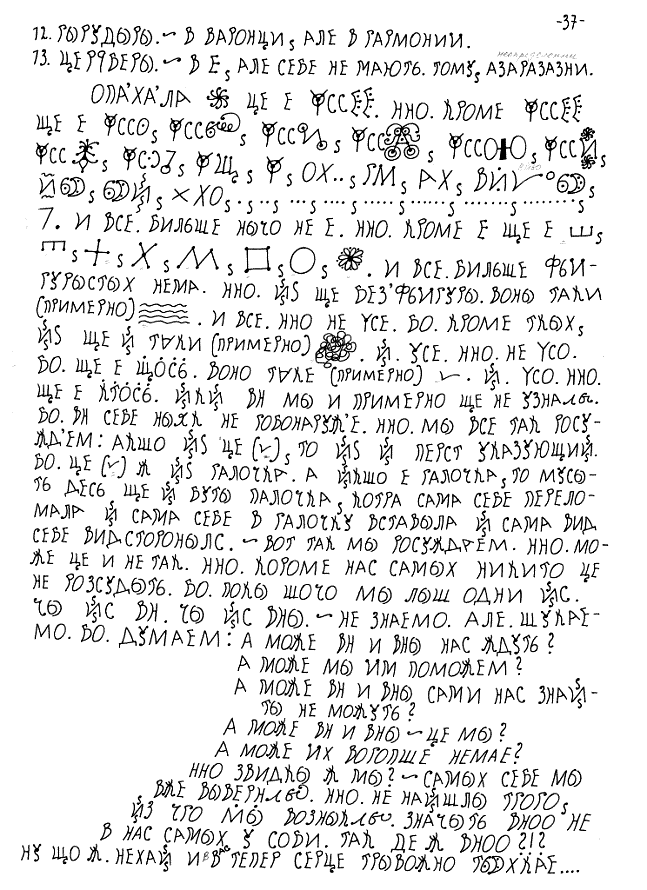 -37-
12. РЫРУДЫРЫ. ~ В ВАРОНЦИ, АЛЕ В ГАРМОНИИ.
13. ЦЕРЯВЕРЫ. ~ В Е, АЛЕ СЕБЕ НЕ МАЮТЬ. ТОМУ, АЗАРАЗАЗНИ.
ОПА'ХА'ЛА ЦЕ Е ННО. КРОМЕ
ЩЕ Е
ОХ.., ГМ, АХ,
ХО,
7. И ВСЕ. БИЛЬШЕ НЫЧО НЕ Е. ННО. КРОМЕ Е ЩЕ Е Ш,
. И ВСЕ. БИЛЬШЕ ФЫИ-
ГУРЫСТЫХ НЕМА. ННО. ЩЕ БЕЗ'ФЫИГУРЫ. ВОНЫ ТАКИ
(ПРИМЕРНО) . И ВСЕ. ННО НЕ УСЕ. БО. КРОМЕ ТКЫХ,
ЩЕ Й ТАКИ (ПРИМЕРНО) . Й. УСЕ. ННО. НЕ УСО.
БО. ЩЕ Е ЩОСЬ. ВОНО ТАКЕ (ПРИМЕРНО) ✓. Й. УСО. ННО.
ЩЕ Е КТОСЬ. ВН МЫ И ПРИМЕРНО ЩЕ НЕ УЗНАЛЫ.
БО. ВН СЕБЕ НЫЯК НЕ РОБОНАРУЖ'Е. ННО. МЫ ВСЕ ТАК РОСУ-
ЖД'ЕМ: АКШО ЦЕ (✓), ТО Й ПЕРСТ УКАЗУЮЩИЙ.
БО. ЦЕ (✓) Ж ГАЛОЧКА. А ЙКШО Е ГАЛОЧКА, ТО МУСЫ-
ТЬ ДЕСЬ ЩЕ Й БУТЫ ПАЛОЧКА, КОТРА САМА СЕБЕ ПЕРЕЛО-
МАЛА Й САМА СЕБЕ В ГАЛОЧКУ ВСТАВЫЛА Й САМА ВИД
СЕБЕ ВИДСТОРОНЫЛС. ~ ВОТ ТАК МЫ РОСУЖДАЕМ. ННО. МО-
ЖЕ ЦЕ И НЕ ТАК. ННО. КОРОМЕ НАС САМЫХ НИКИТО ЦЕ
НЕ РОЗСУДЫТЬ. БО. ПОКЫ ШОЧО МЫ ЛЫШ ОДНИ ЙС.
ЧЫ ЙС ВН. ЧЫ ЙС ВНЫ. ~ НЕ ЗНАЕМО. АЛЕ. ШУКАЕ-
МО. БО. ДУМАЕМ: А МОЖЕ ВН И ВНЫ НАС ЖДУТЬ?
А МОЖЕ МЫ ИМ ПОМОЖЕМ?
А МОЖЕ ВН И ВНЫ САМИ НАС ЗНАЙ-
ТЫ НЕ МОЖУТЬ?
А МОЖЕ ВН И ВНЫ ~ ЦЕ МЫ?
А МОЖЕ ИХ ВОГОПШЕ НЕМАЕ?
ННО ЗВИДКЫ Ж МЫ? ~ САМЫХ СЕБЕ МЫ
ВЖЕ ВЫВЕРНЛЫ. ННО. НЕ НАЙШЛЫ ТРОГО,
ЙЗ ЧТО МЫ ВОЗНЫКЛЫ. ЗНАЧЫТЬ ВНОО НЕ
В НАС САМЫХ У СОБИ. ТАК ДЕ Ж ВНОО ?!?
НУ ЩО Ж. НЕХАЙ И В ВАС ТЕПЕР СЕРЦЕ ТРЫВОЖНО ТЫХКАЕ....